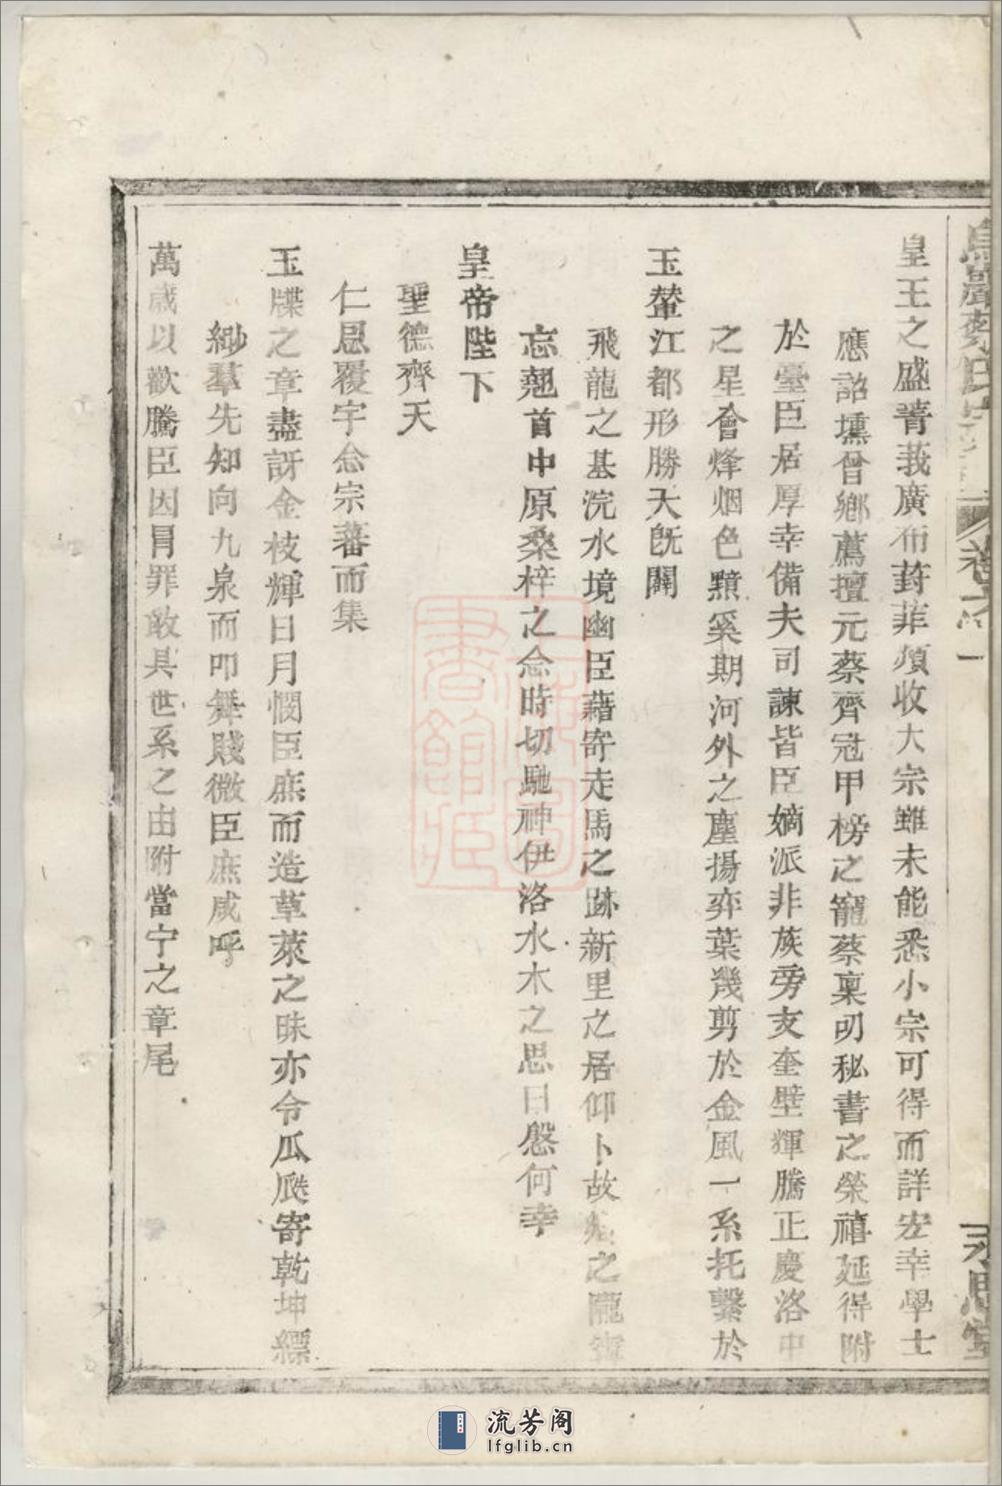 皇王之盛菁莪廣布葑菲須收大宗雖未能悉小宗可得而詳宏幸學士
應詔壎曾鄉薦擅元蔡齊冠甲榜之寵蔡稟叨秘書之榮禧延得附
於臺臣居厚幸備夫司諫皆臣嫡派非族旁支奎壁輝騰正慶洛中
之星會烽烟色黯奚期河外之塵揚弈葉幾剪於金風一系托繫於
玉輦江都形勝天既闢
飛龍之基浣水境幽臣藉寄走馬之跡新里之居仰卜故之隴
忘翹首中原桑梓之念時切馳神伊洛水木之思日慇何幸
皇帝陛下
聖德齊天
仁恩覆宇念宗蕃而集
玉牒之章盡訝金枝輝日月憫臣庶而造草萊之昧亦令瓜瓞寄乾坤縹
緲羣先知向九泉而叩舞賤微臣庶咸呼
萬歲以歡騰臣因冐罪敢具世系之由附當宁之章尾
卷六 一
永思堂
上海圖書館藏
流芳阁
lfglib.cn